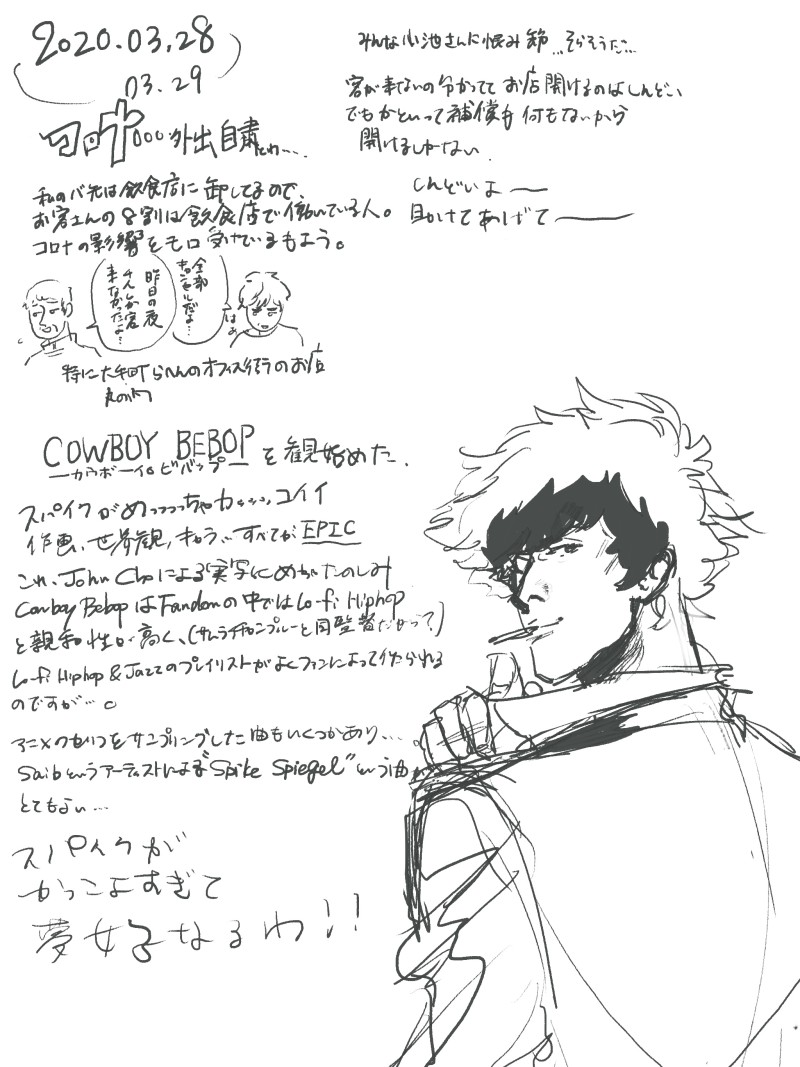 2020.03.28
03.29
コロナ。。。外出自粛だわ....
私のバ先は飲食店に卸してるので、
お客さんの8割は飲食店で働いている人。
コロナの影響をモロ受けているもよう。
昨日の夜
来なかったよ…
全部
キャンセルだよ…
はぁ
特に大手町らへんのオフィス街のお店
丸の内
みんな小池さんに恨み節...そらそうだ...
客が来ないの分かってて お店開けるのはしんどい
でもかといって補償も何もないから
開けるしかない.
しんどいよー
助けてあげてー
COWBOY BEBOP を観始めた.
ーカウボーイ・ビバップー
スパイクがめっっっっちゃカッッッッコイイ
作画、世界観、キャラ、、すべてが EPIC
これ、John Choによる実写にめがたのしみ
Cowboy BebopはFandomの中ではLo-fi Hiphop
と親和性が高く、(サムライチャンプルーと同監督だからかって?)
Lo-fi Hiphop & Jazzのプレイリストがよくファンによって作られる
のですが...。
アニメのセリフをサンプリングした曲もいくつかあり....
Saibというアーティストによる"Spike Spiegel"という曲が
とてもよい...
スパイクが
かっこよすぎて
夢女子なるわ!!